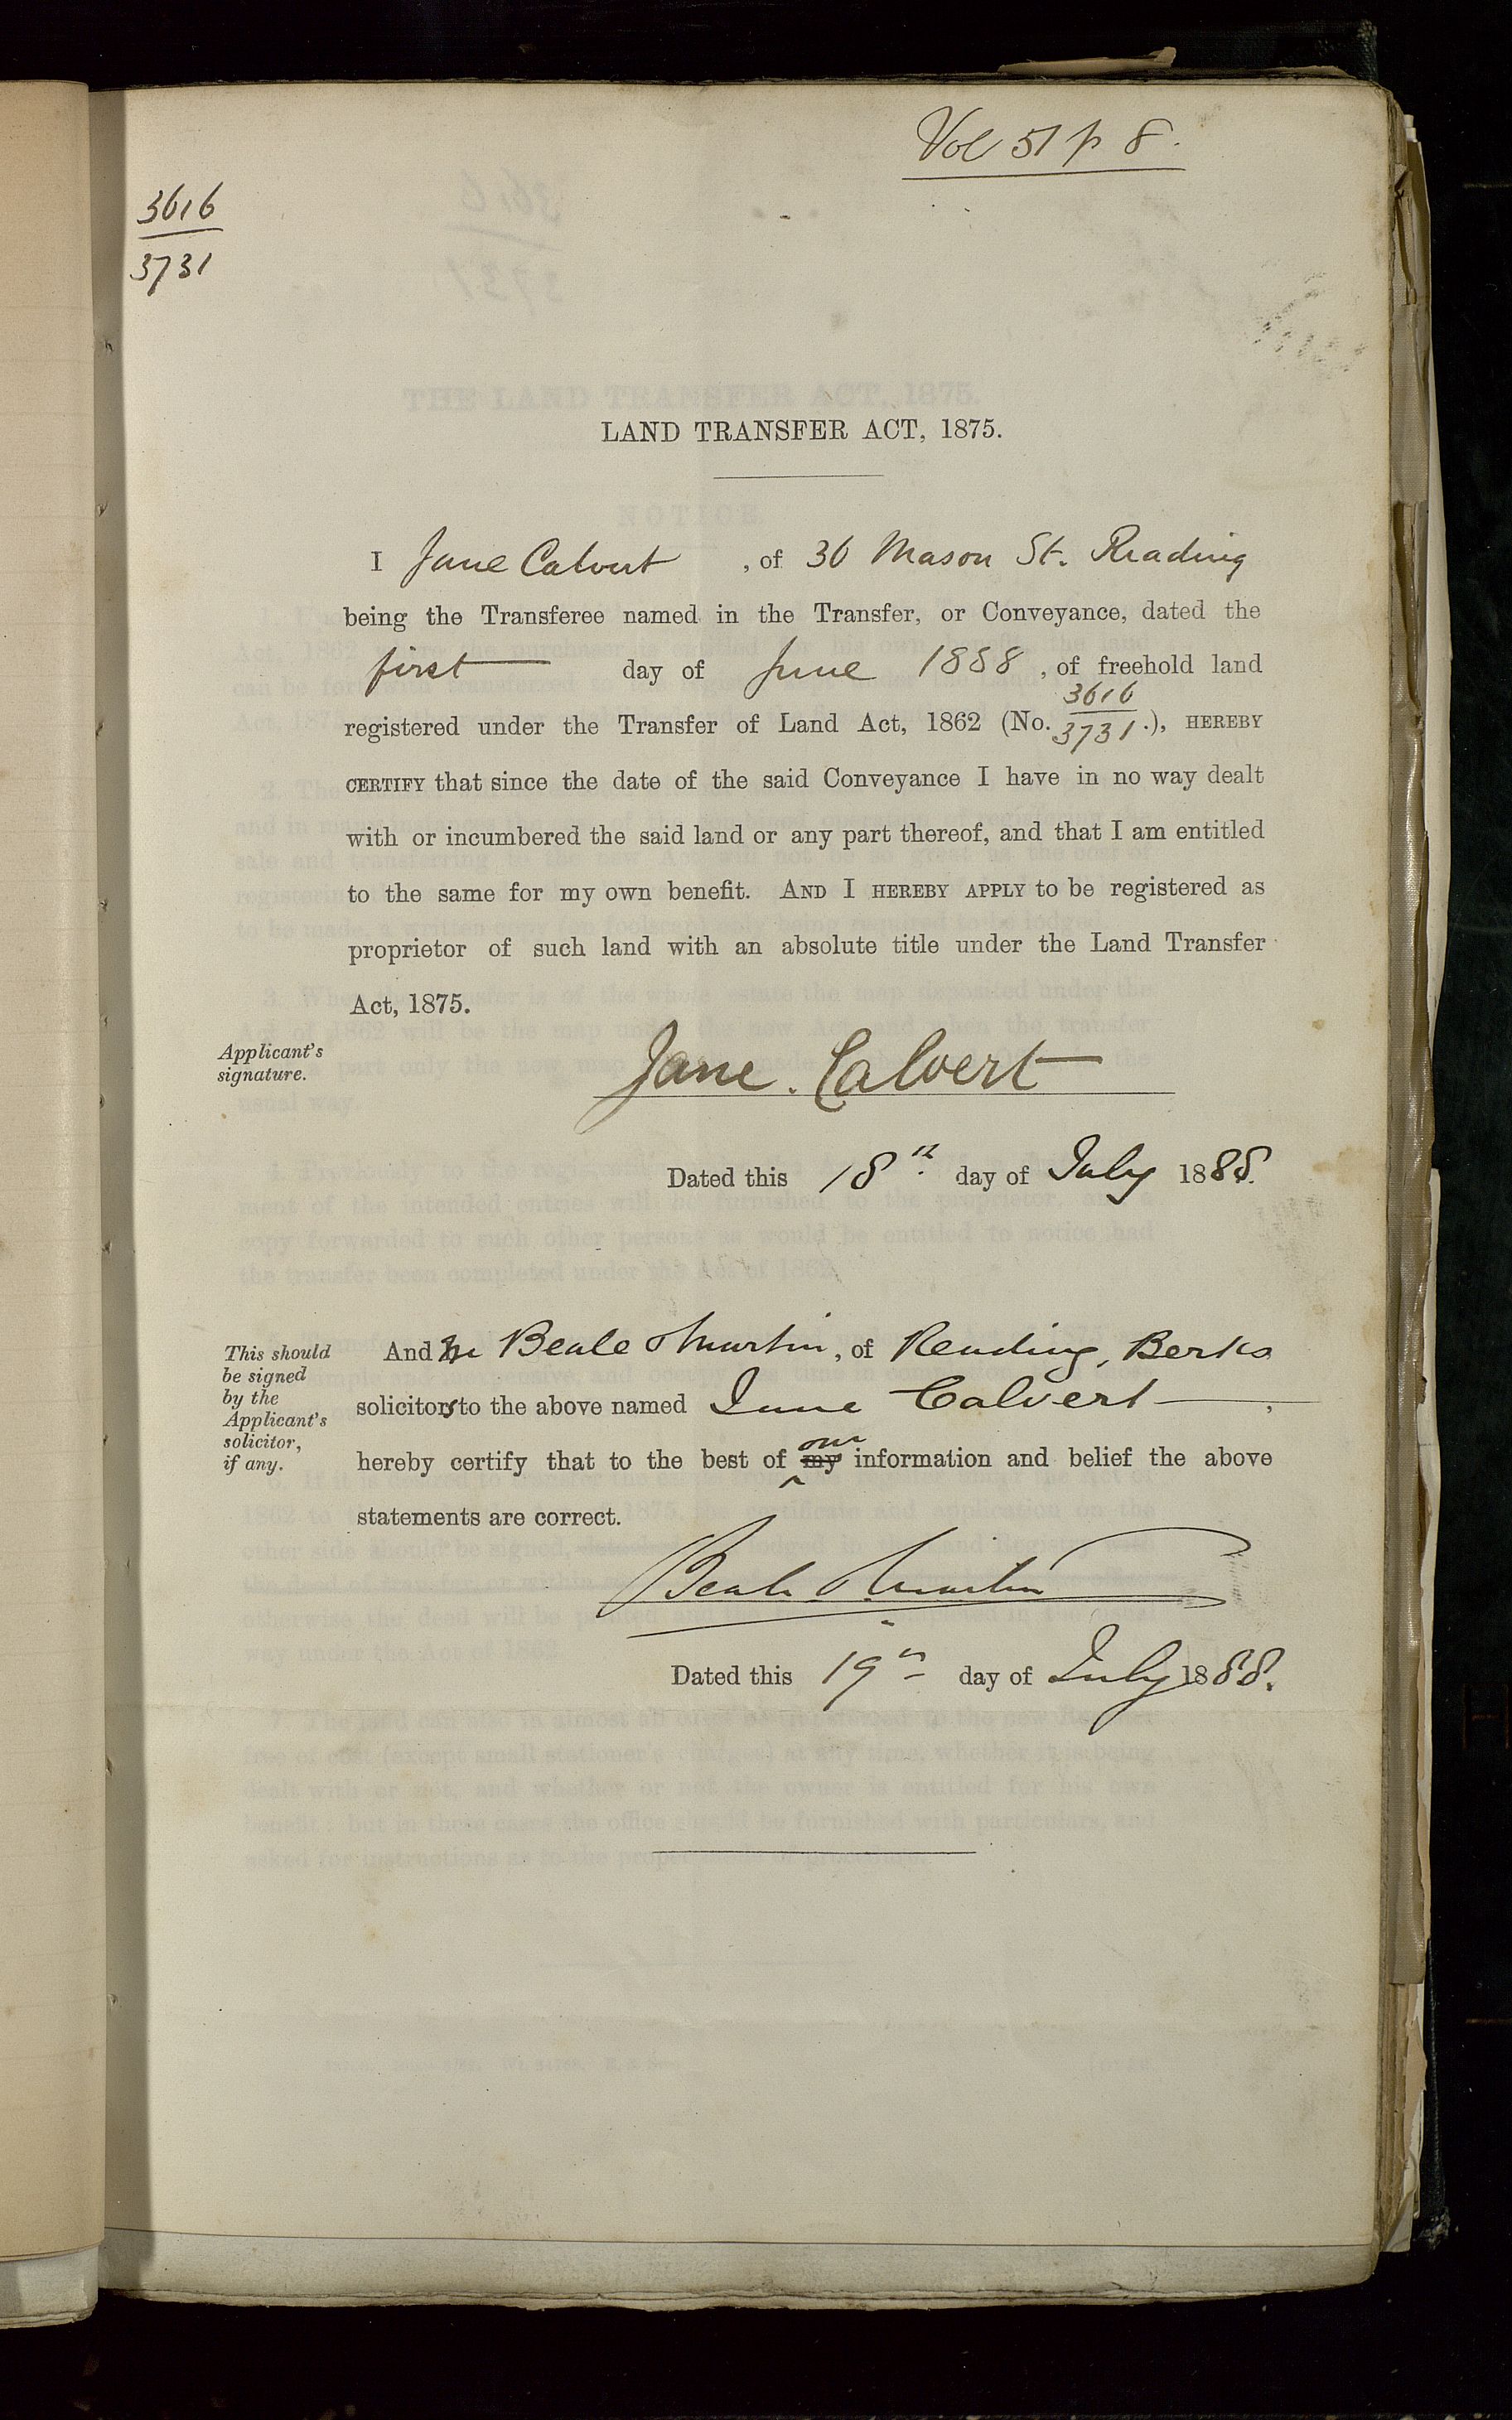 Vol 51 p 8.
3616
3731
LAND TRANSFER ACT, 1875.
I Jane Calvert , of 36 Mason St. Reading
being the Transferee named in the Transfer, or Conveyance, dated the
first day of June 1888 , of freehold land
registered under the Transfer of Land Act, 1862 (No. 3616/3731.), HEREBY
CERTIFY that since the date of the said Conveyance I have in no way dealt
with or incumbered the said land or any part thereof, and that I am entitled
to the same for my own benefit. AND I HEREBY APPLY to be registered as
proprietor of such land with an absolute title under the Land Transfer
Act, 1875.
Applicant's
signature.
Jane. Calvert
Dated this 18th day of July 1888.
This should
be signed
by the
Applicant's
solicitor,
if any.
And We Beale & Martin, of Reading, Berks
solicitors to the above named Jane Calvert ,
hereby certify that to the best of my our information and belief the above
statements are correct.
Beale & Martin
Dated this 19th day of July 1888.